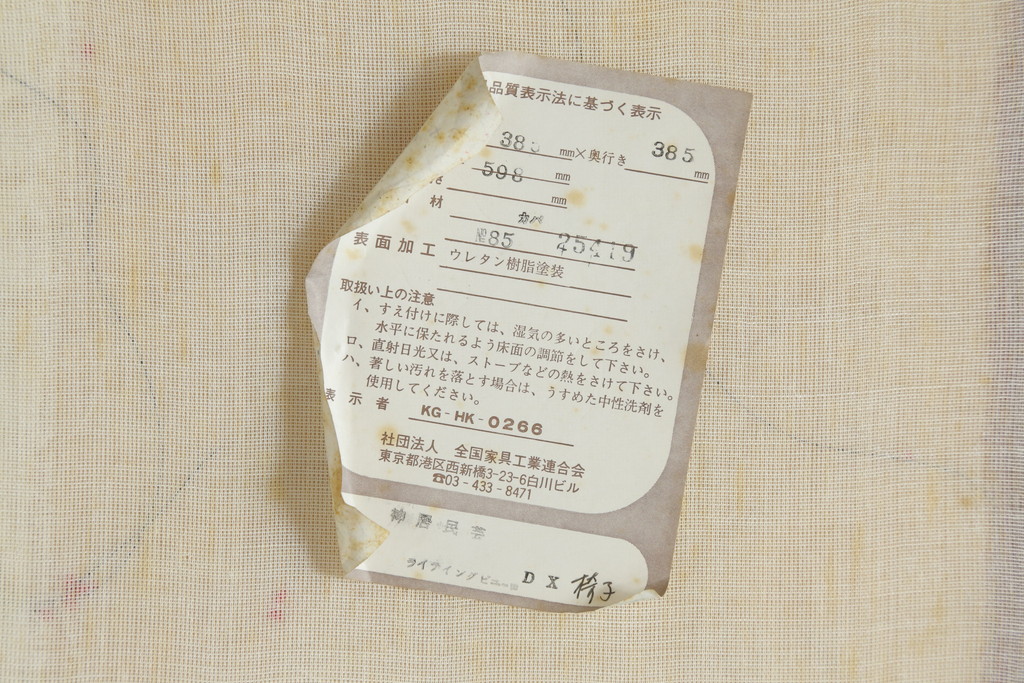 品質表示法に基づく表示
mm×奥行き 385 mm
598 mm
mm
材
カバ
85 25419
表面加工 ウレタン樹脂塗装
取扱い上の注意
イ、すえ付けに際しては、湿気の多いところをさけ、
水平に保たれるよう床面の調節をして下さい。
ロ、直射日光又は、ストーブなどの熱をさけて下さい。
ハ、著しい汚れを落とす場合は、うすめた中性洗剤を
使用してください。
表示者 KG-HK-0266
社団法人 全国家具工業連合会
東京都港区西新橋3-23-6白川ビル
☎03-433-8471
民芸
DX 椅子